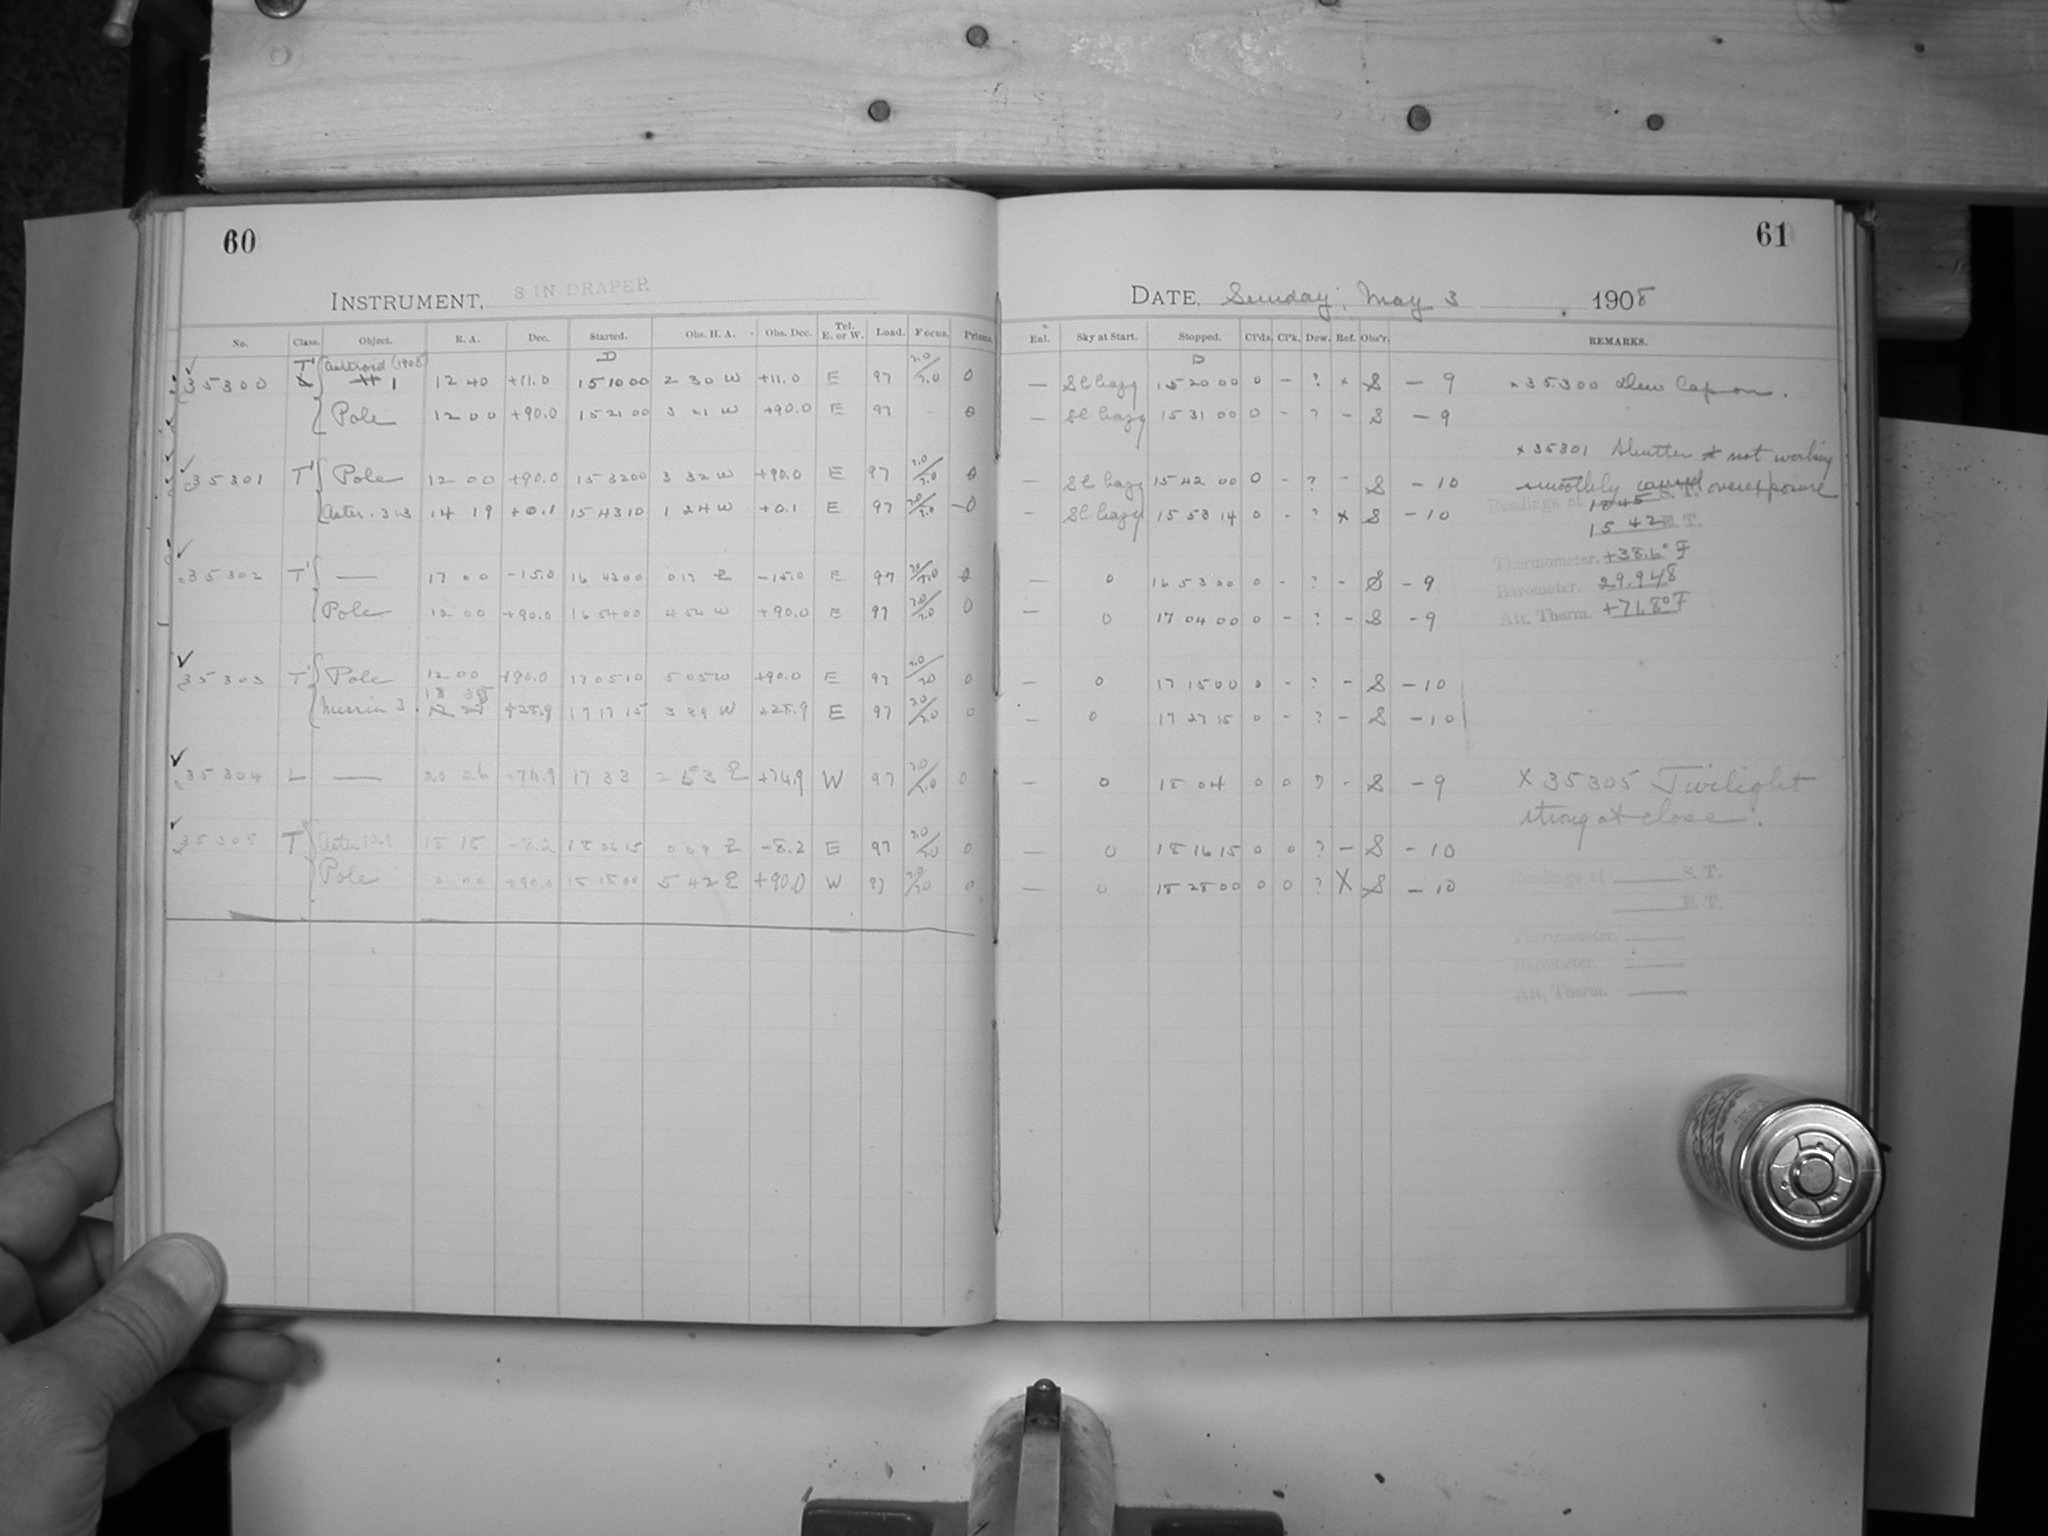 60
61
INSTRUMENT, 8 IN DRAPER
DATE, Sunday, May 3 1908
No. Class. Object. R. A. Dec. Started. Obs. H. A. Obs. Dec. Tel. E. or W. Load. Focus. Prisms.
Enl. Sky at Start. Stopped. Cl'ds. Cl'k. Dew. Ref. Obs'r. REMARKS.
35300 T' Asteroid (1908) 1 12 40 +11.0 15 10 00 2 30 W +11.0 E 97 0 — Sl hazy 15 20 00 0 - ? × S - 9 × 35300 Dew Cap on.
Pole 12 00 +90.0 15 21 00 3 21 W +90.0 E 97 - 0 — Sl hazy 15 31 00 0 - ? - S - 9
35301 T' Pole 12 00 +90.0 15 32 00 3 32 W +90.0 E 97 0 — Sl hazy 15 42 00 0 - ? - S - 10
× 35301 Shutter not working
smoothly caused overexposure
Aster. 313 14 19 +0.1 15 43 10 1 24 W +0.1 E 97 0 - Sl hazy 15 53 14 0 - ? × S - 10
Readings at 1845 S. T.
15 42 E. T.
Thermometer. +38.6° F
Barometer. 29.948
Att. Therm. +71.8° F
35302 T' — 17 00 -15.0 16 43 00 0 17 E -15.0 E 97 0 — 0 16 53 00 0 - ? - S - 9
Pole 12 00 +90.0 16 54 00 4 54 W +90.0 E 97 0 — 0 17 04 00 0 - ? - S - 9
35303 T' Pole 12 00 +90.0 17 05 10 5 05 W +90.0 E 97 0 — 0 17 15 00 0 - ? - S - 10
+28.9 17 17 15 W +28.9 E 97 0 — 0 17 27 15 0 - ? - S - 10
35304 L — 20 26 +74.9 17 33 2 53 E +74.9 W 97 0 — 0 18 04 0 0 ? - S - 9
X 35305 Twilight
strong at close.
35305 T' 15 15 -8.2 18 06 15 0 09 E -8.2 E 97 0 — 0 18 16 15 0 0 ? - S - 10
Pole 0 00 +90.0 18 18 00 5 42 E +90.0 W 97 0 — 0 18 28 00 0 0 ? X S - 10
Readings at S. T.
E. T.
Thermometer.
Barometer.
Att. Therm.